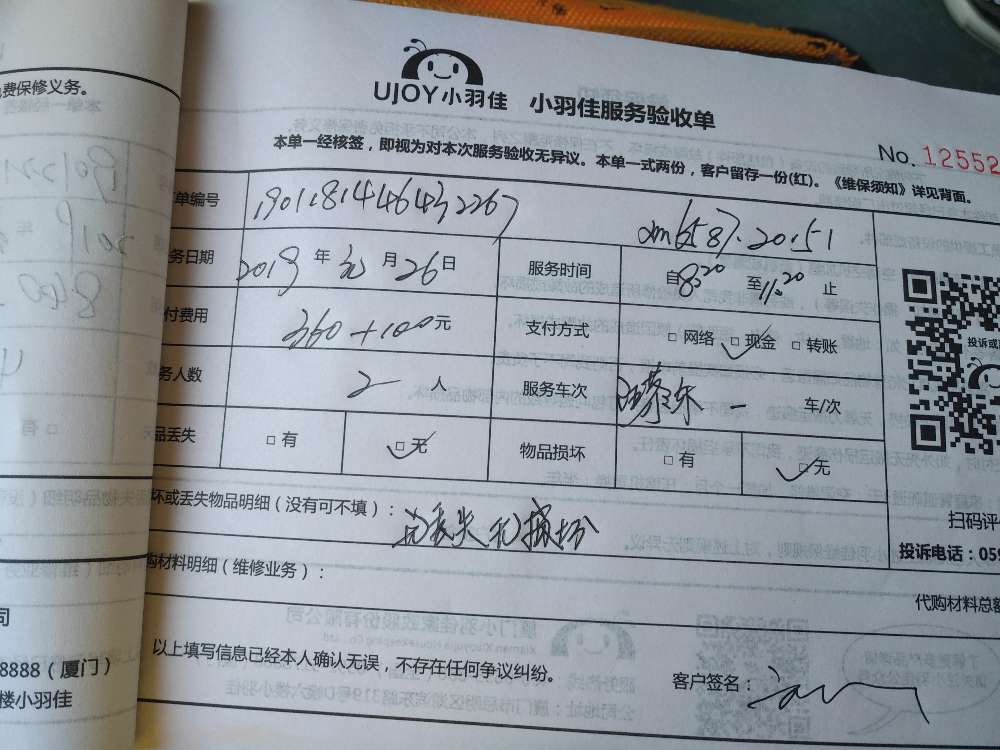 费保修义务。
UJOY小羽佳 小羽佳服务验收单
本单一经核签，即视为对本次服务验收无异议。本单一式两份，客户留存一份(红)。《维保须知》详见背面。
No. 12552
单编号 1901181446432267
务日期 2019 年 元 月 26 日 服务时间 自 8:20 至 11:20 止
付费用 360+100 元 支付方式 □ 网络 □ 现金 □ 转账
务人数 2 人 服务车次 一 车/次
品丢失 □ 有 □ 无 物品损坏 □ 有 □ 无
坏或丢失物品明细（没有可不填）： 无丢失 无损坏
购材料明细（维修业务）：
代购材料总额
以上填写信息已经本人确认无误，不存在任何争议纠纷。
客户签名：
投诉或
扫码评
投诉电话：059
司
8888（厦门）
楼小羽佳